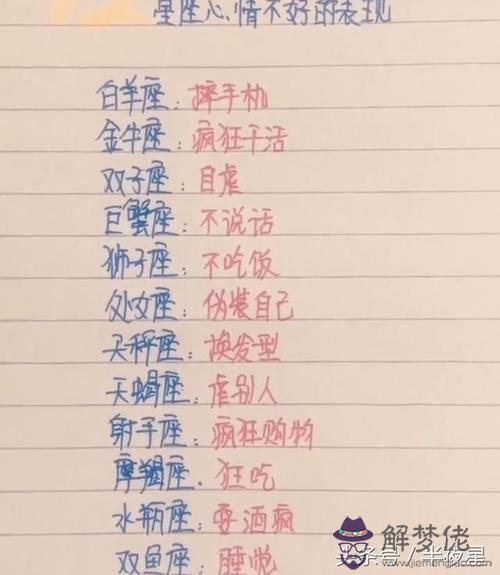 星座心情不好的表现
白羊座：摔手机
金牛座：疯狂干活
双子座：自虐
巨蟹座：不说话
狮子座：不吃饭
处女座：伪装自己
天秤座：换发型
天蝎座：虐别人
射手座：疯狂购物
摩羯座：狂吃
水瓶座：耍酒疯
双鱼座：睡觉
头条号/半夜星
解梦佬
www.jiemenglao.com